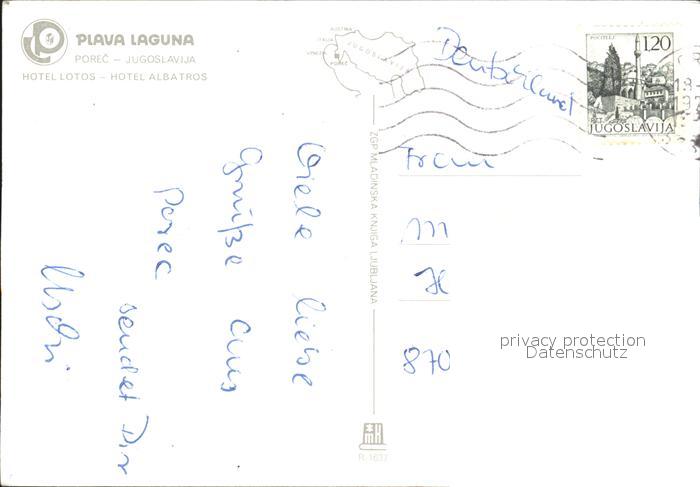 PLAVA LAGUNA
POREČ – JUGOSLAVIJA
HOTEL LOTOS – HOTEL ALBATROS
AUSTRIA
ITALIA
JUGOSLAVIJA
POREČ
Deutschland
POČITELJ
1,20
JUGOSLAVIJA
Viele liebe
Grüße aus
Porec
sendet Dir
Uschi
ZGP MLADINSKA KNJIGA LJUBLJANA
Frau
870
privacy protection
Datenschutz
R-1637